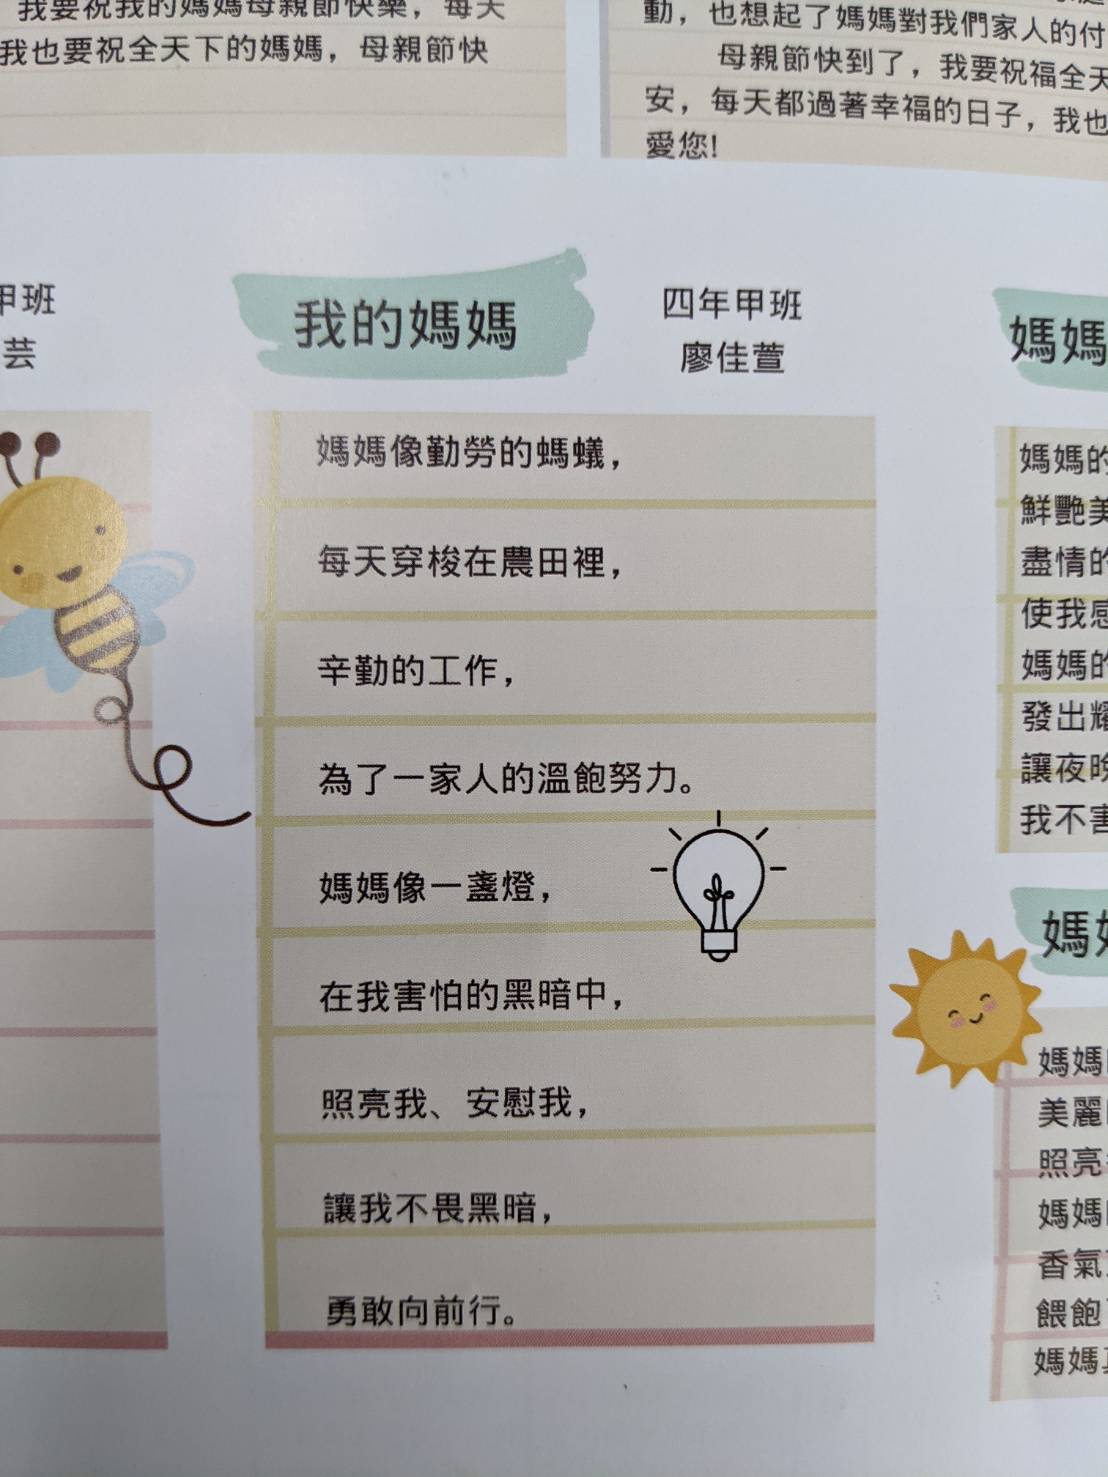 我要祝我的媽媽母親節快樂，每天
我也要祝全天下的媽媽，母親節快
動，也想起了媽媽對我們家人的付
母親節快到了，我要祝福全天
安，每天都過著幸福的日子，我也
愛您!
甲班
芸
我的媽媽
四年甲班
廖佳萱
媽媽像勤勞的螞蟻，
每天穿梭在農田裡，
辛勤的工作，
為了一家人的溫飽努力。
媽媽像一盞燈，
在我害怕的黑暗中，
照亮我、安慰我，
讓我不畏黑暗，
勇敢向前行。
媽媽
媽媽的
鮮艷美
盡情的
使我感
媽媽的
發出耀
讓夜晚
我不害
媽媽
媽媽
美麗
照亮
媽媽
香氣
餵飽
媽媽